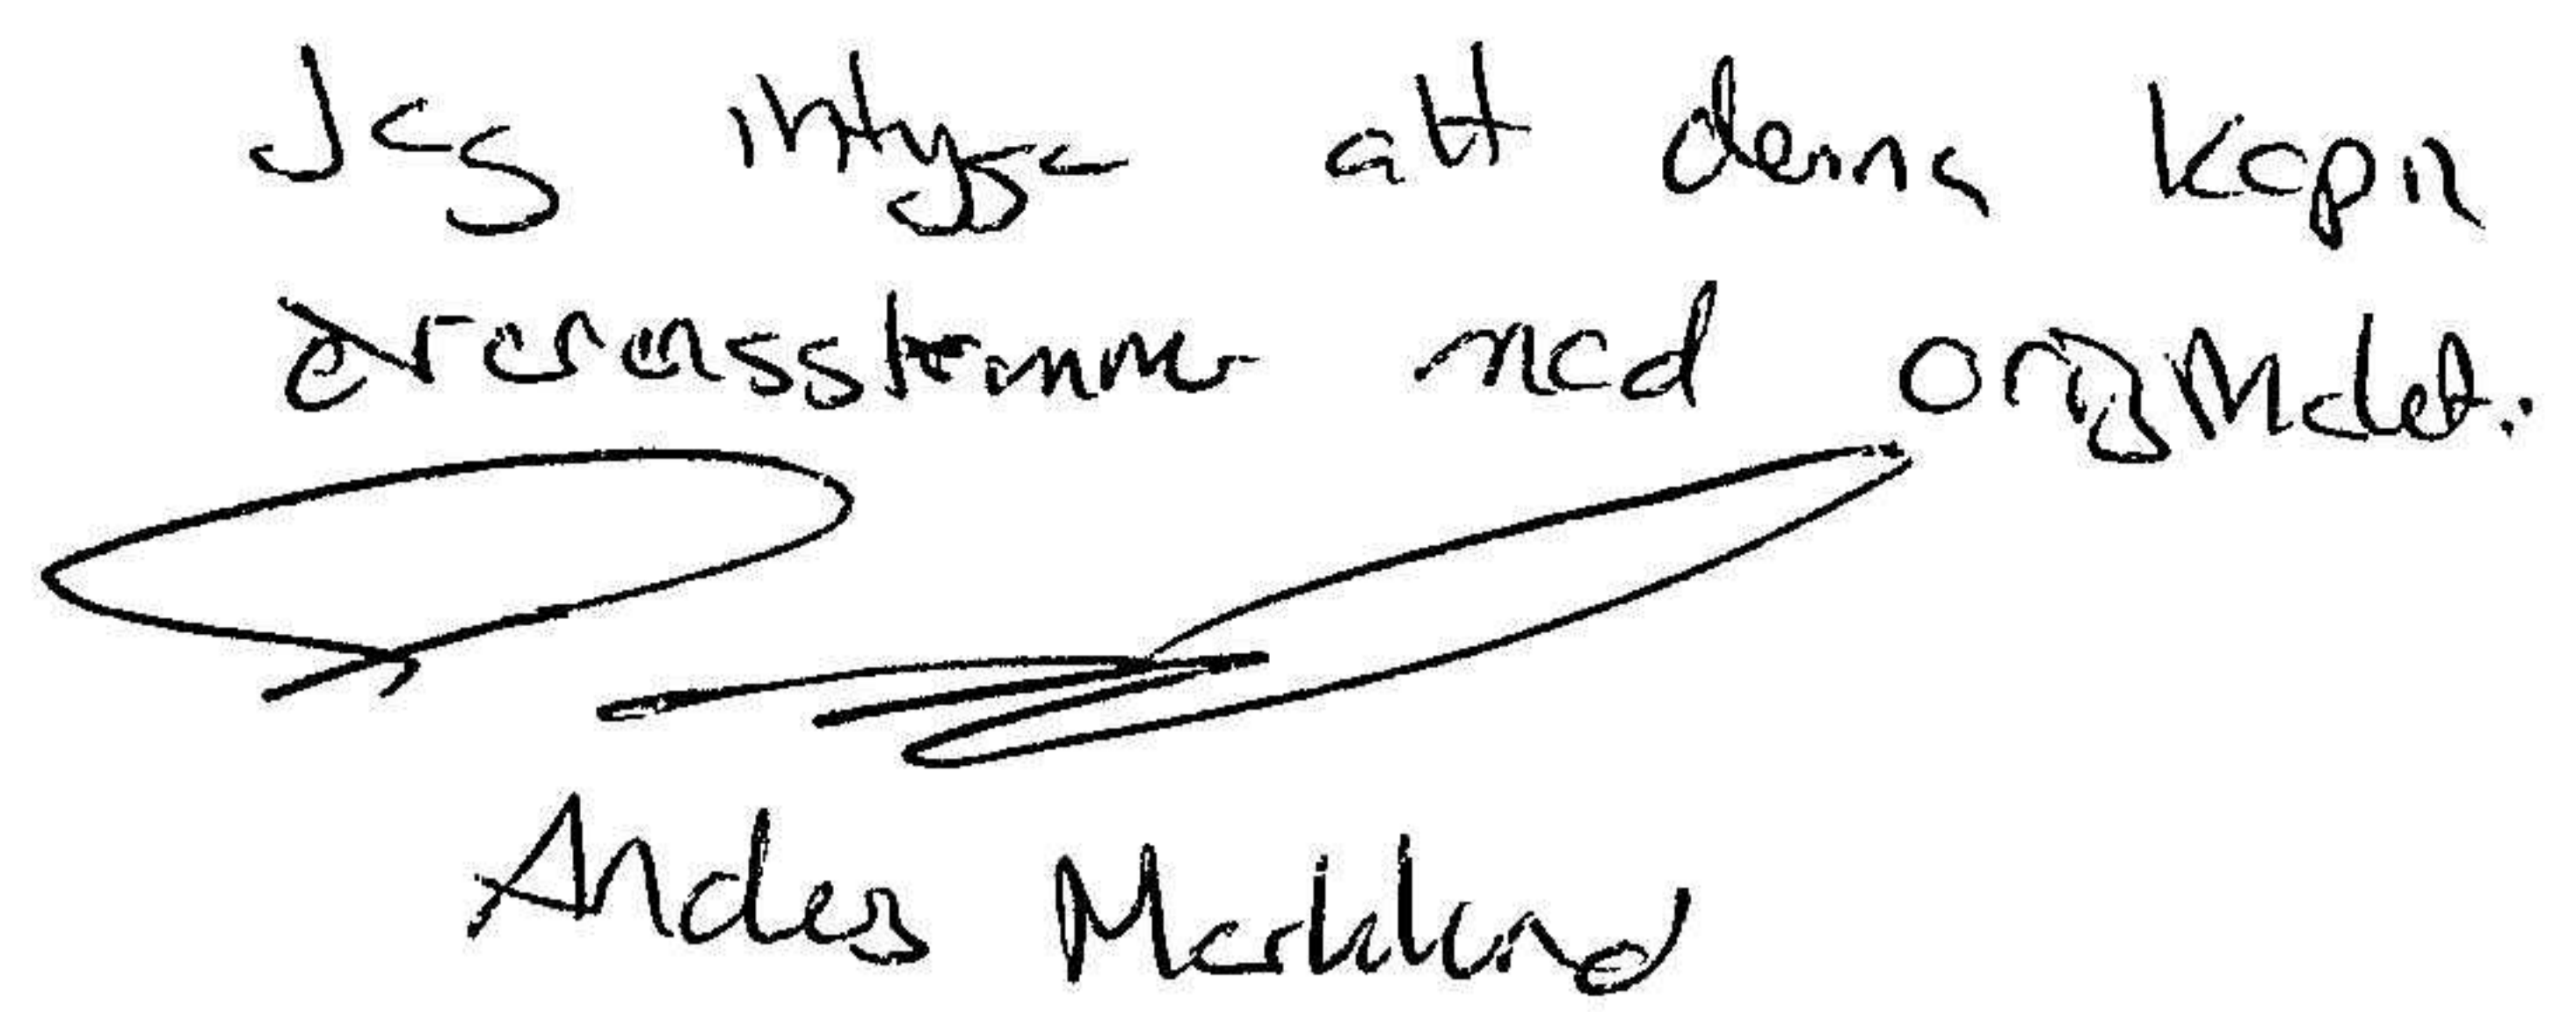 Jag intyga att denna kopia
överensstämmer med originalet.
Anders Marklund